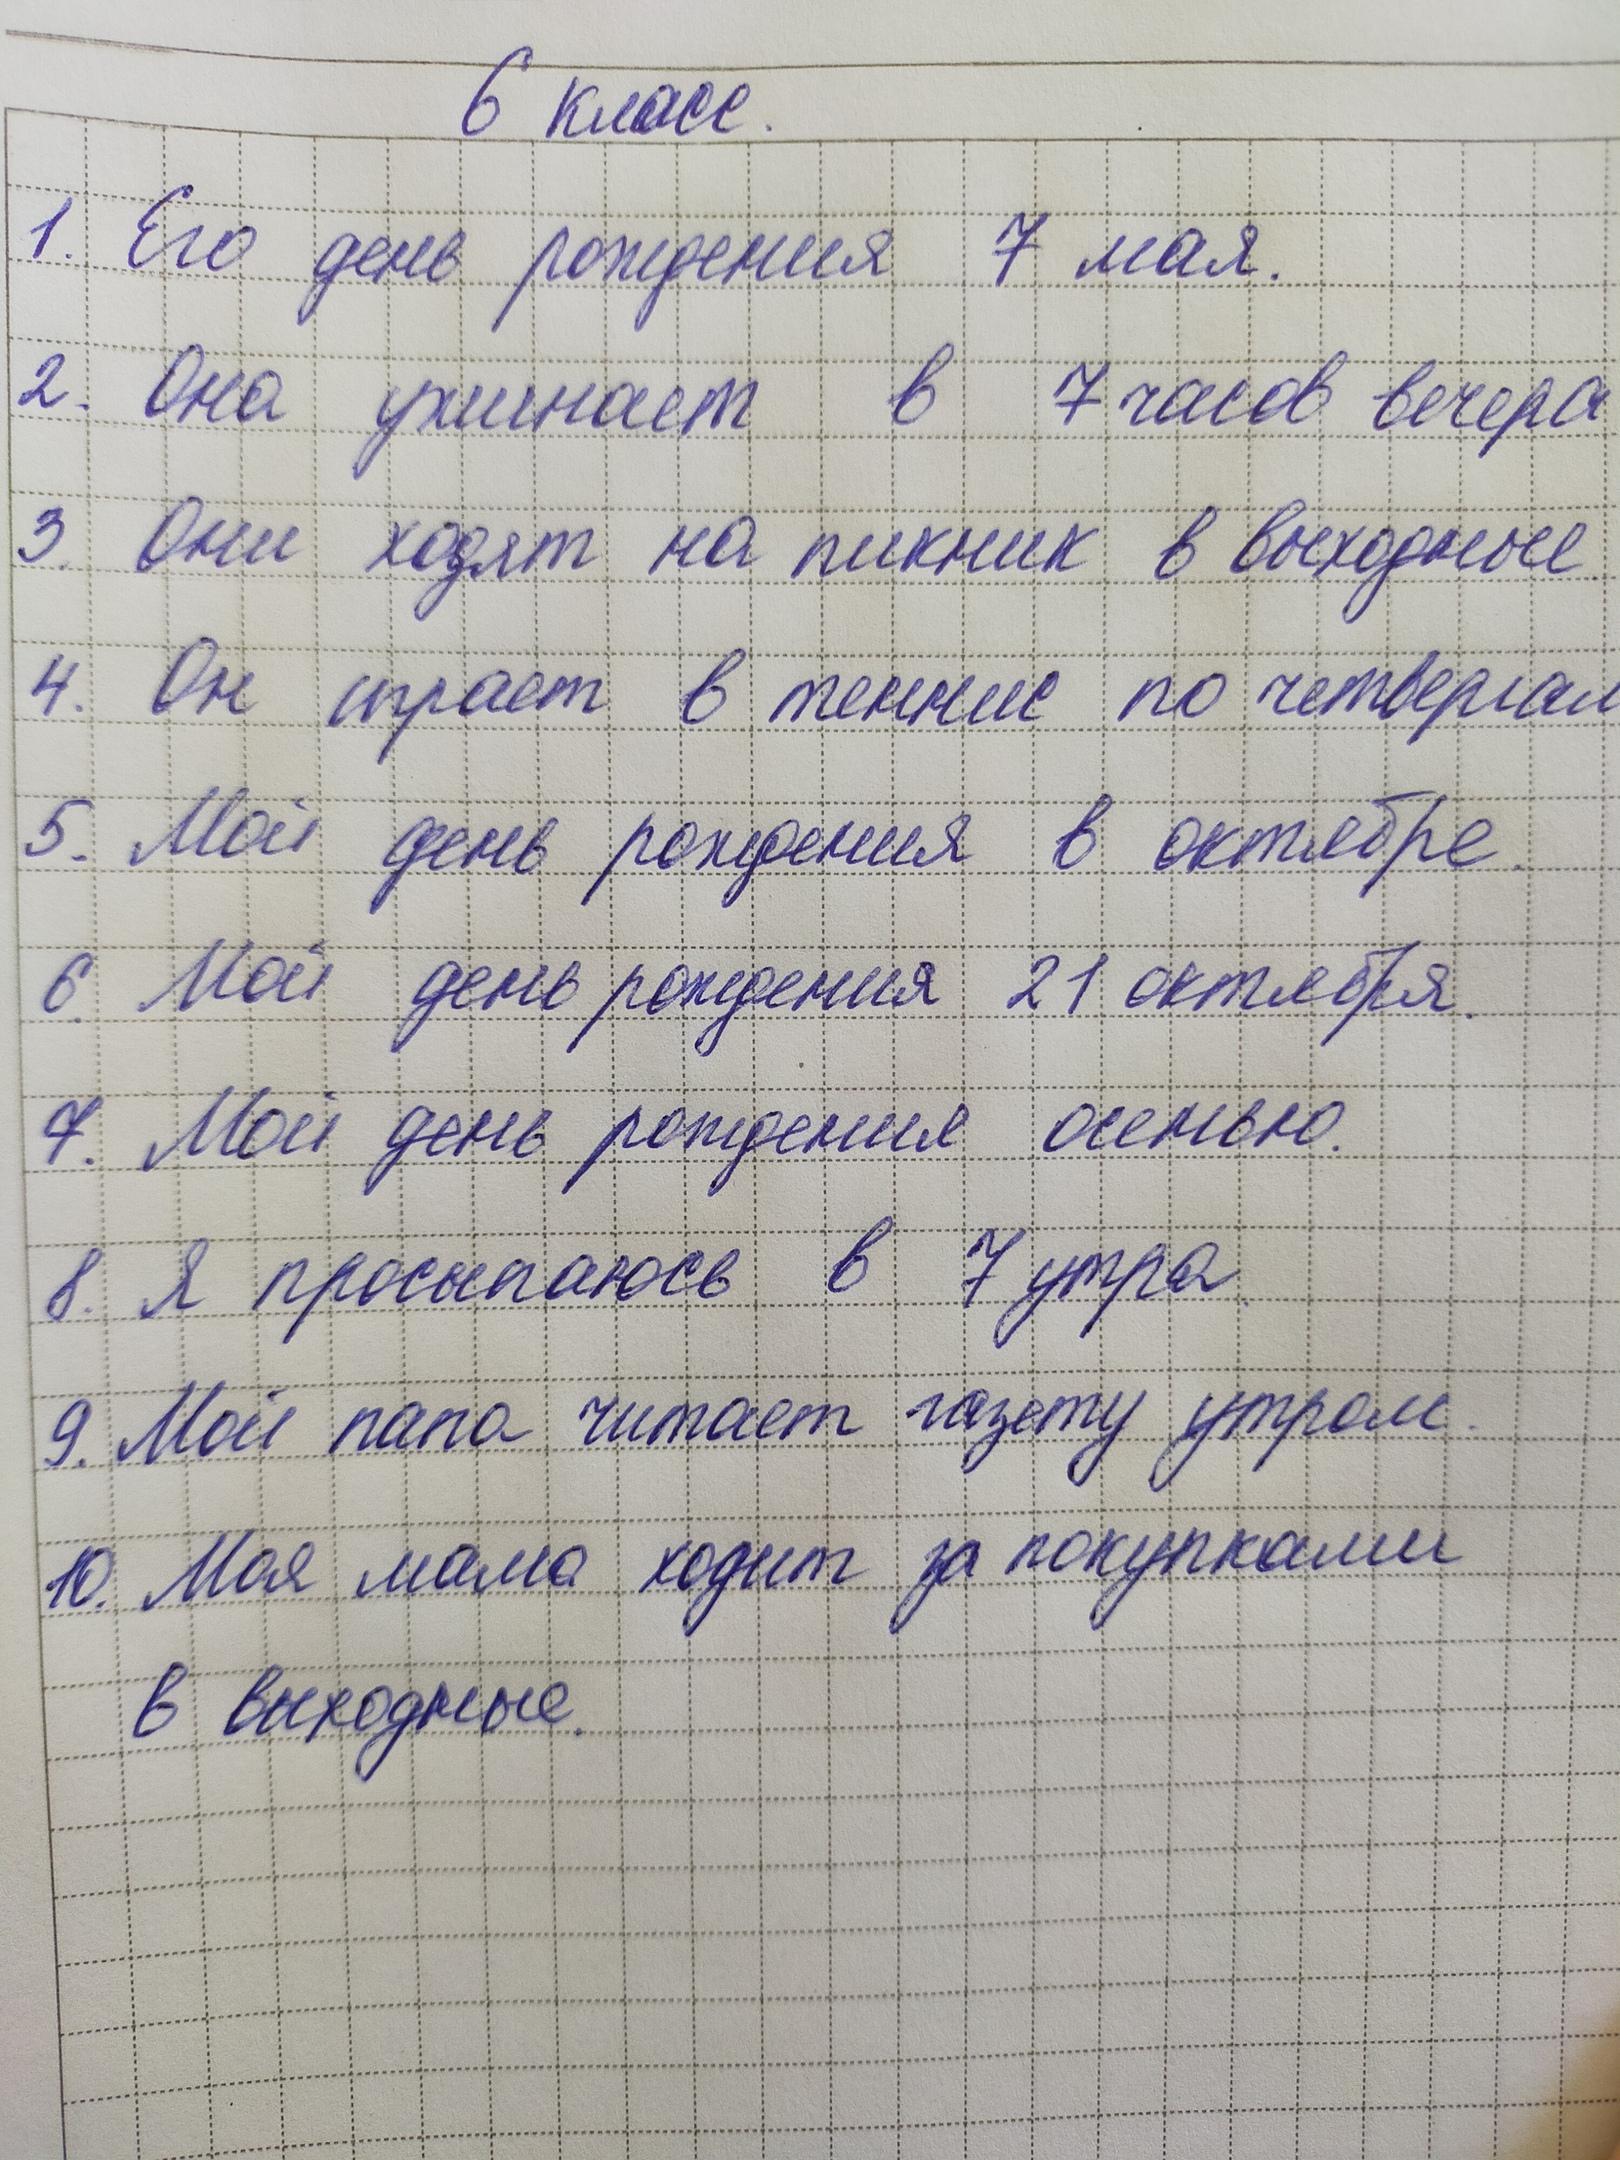 6 класс.
1. Его день рождения 7 мая.
2. Она ужинает в 7 часов вечера
3. Они ходят на пикник в выходные.
4. Он играет в теннис по четвергам
5. Мой день рождения в октябре.
6. Мой день рождения 21 октября.
7. Мой день рождения осенью.
8. Я просыпаюсь в 7 утра.
9. Мой папа читает газету утром.
10. Моя мама ходит за покупками
в выходные.